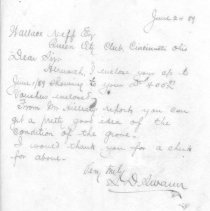 June 24 89
Wallace Neff Esq
Queen City Club, Cincinnati Ohio
Dear Sir
Herewith, I enclose you a/c up to
June 1/89 showing to your Dr
Vouchers enclosed.
From Mr reports you can
get a pretty good idea of the
condition of the grove.
I would thank you for a check
for above.
Very truly